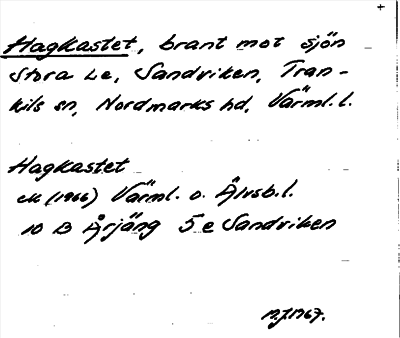 Hagkastet, brant mot sjön
Stora Le, Sandviken, Tran-
kils sn, Nordmarks hd, Värml. l.
Hagkastet
ek (1966) Värml. o. Älvsb. l.
10 B Årjäng 5 e Sandviken
1967.